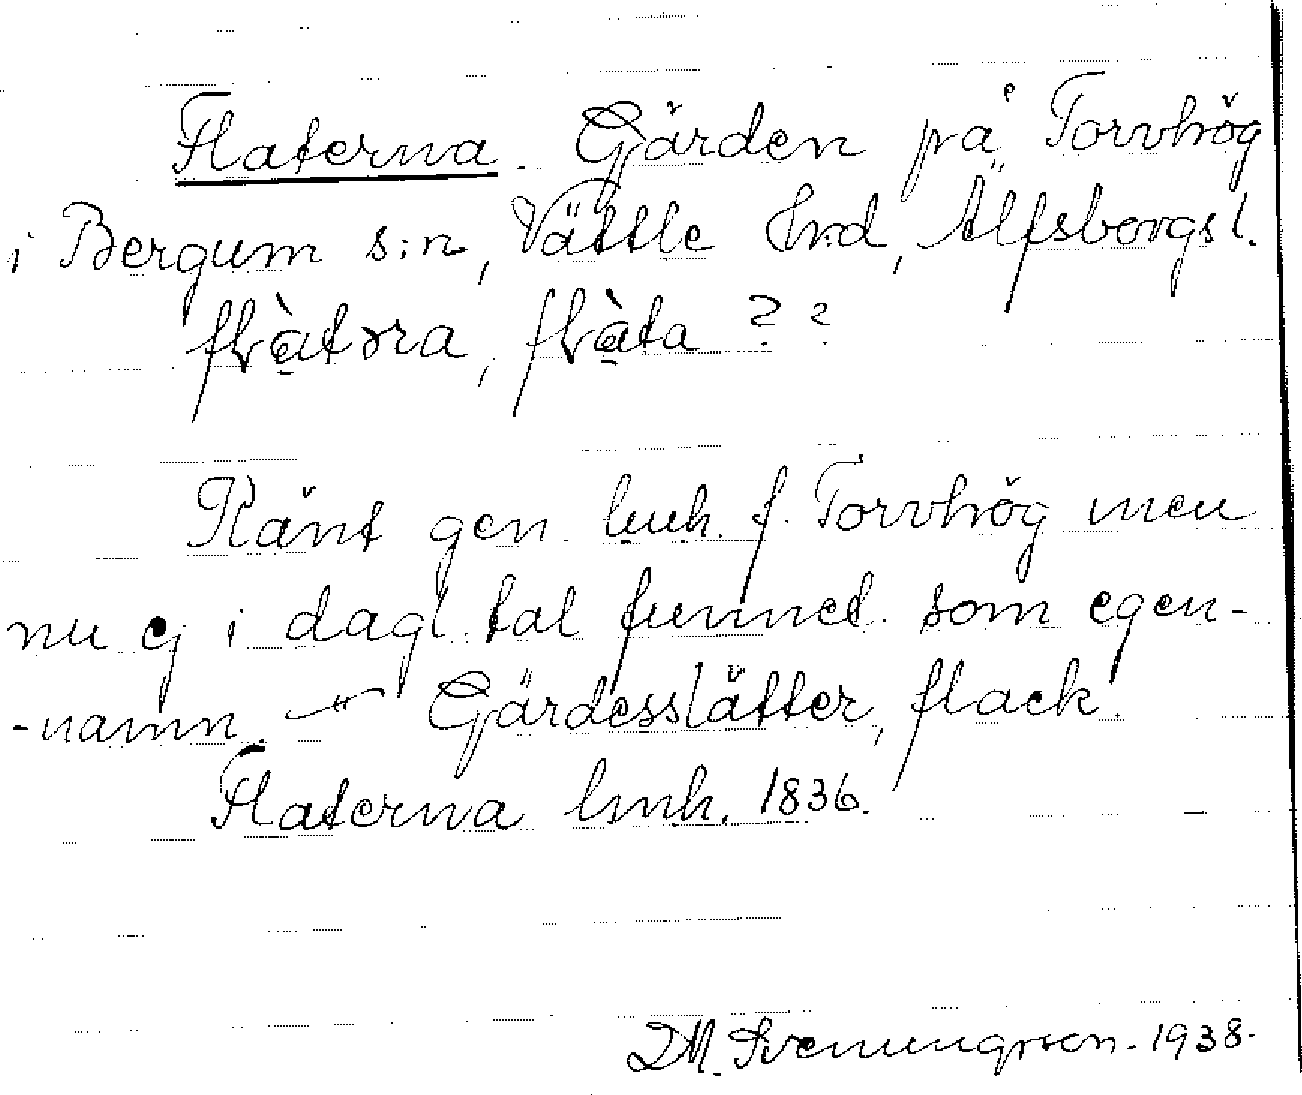 Flaterna. Gärden på Torvhög
i Bergum s:n, Vättle hrd, Älfsborgs l.
flàtɔra, flàta ? ?
Känt gen. lmk. f. Torvhög men
nu ej i dagl. tal funnet som egen-
-namn. — Gärdesslätter, flack.
Flaterna lmk. 1836.
DM. Svenungsson. 1938.